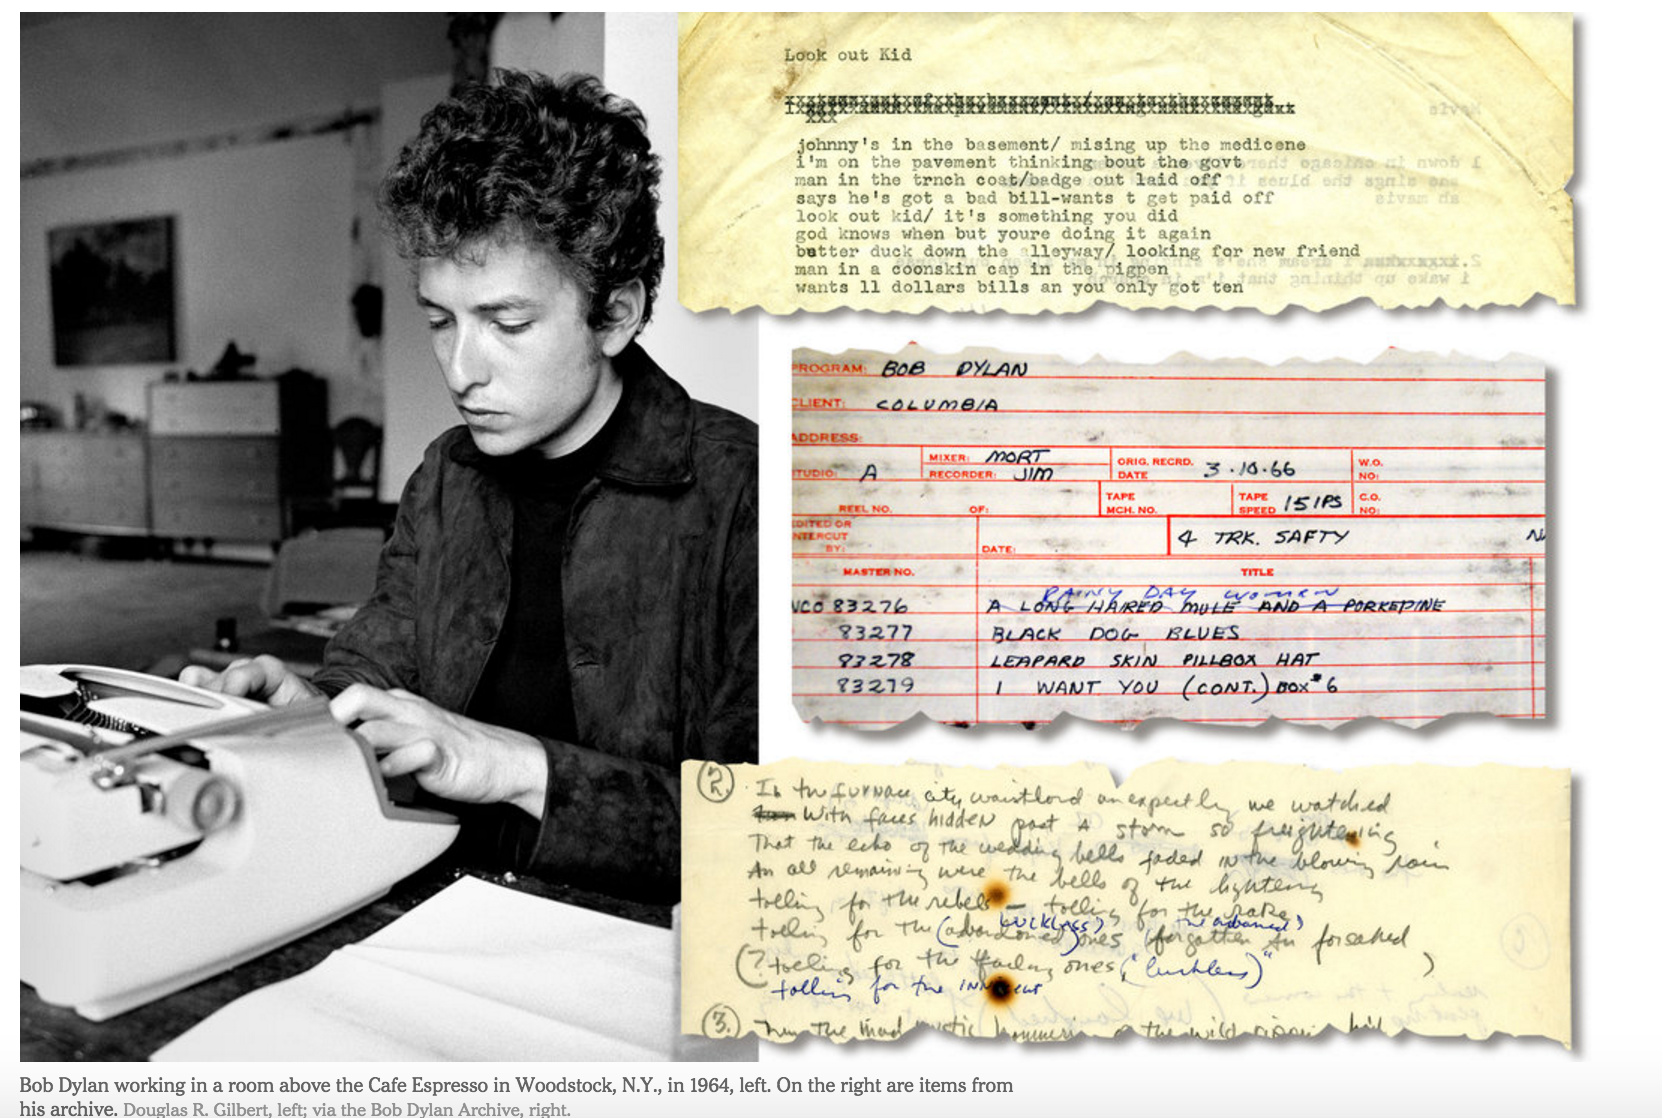 Look out Kid
johnny's in the basement/ mising up the medicene
i'm on the pavement thinking bout the govt
man in the trnch coat/badge out laid off
says he's got a bad bill-wants t get paid off
look out kid/ it's something you did
god knows when but youre doing it again
better duck down the alleyway/ looking for new friend
man in a coonskin cap in the pigpen
wants 11 dollars bills an you only got ten
PROGRAM: BOB DYLAN
CLIENT: COLUMBIA
ADDRESS:
TUDIO: A MIXER: MORT ORIG. RECRD. DATE 3.10.66 W.O. NO:
RECORDER: JIM
REEL NO. OF: TAPE MCH. NO. TAPE SPEED 15 IPS C.O. NO:
EDITED OR
NTERCUT
BY: DATE: 4 TRK. SAFTY
MASTER NO. TITLE
RAINY DAY WOMEN
NCO 83276 A LONG HAIRED MULE AND A PORKEPINE
83277 BLACK DOG BLUES
83278 LEAPARD SKIN PILLBOX HAT
83279 I WANT YOU (CONT.) BOX #6
2. In the furnace city unexpectly we watched
With faces hidden past a storm so freightening
That the echo of the wedding bells faded in the blowing rain
An all remaining were the bells of the lightening
tolling for the rebel – tolling for the rake
(luckless) the abaned)
tolling for the (abandoned) ones forgotten an forsaked
(? tolling for the ones, "luckless")
tolling for the
3. the mad mystic hammerin o the wild hail
Bob Dylan working in a room above the Cafe Espresso in Woodstock, N.Y., in 1964, left. On the right are items from
his archive. Douglas R. Gilbert, left; via the Bob Dylan Archive, right.